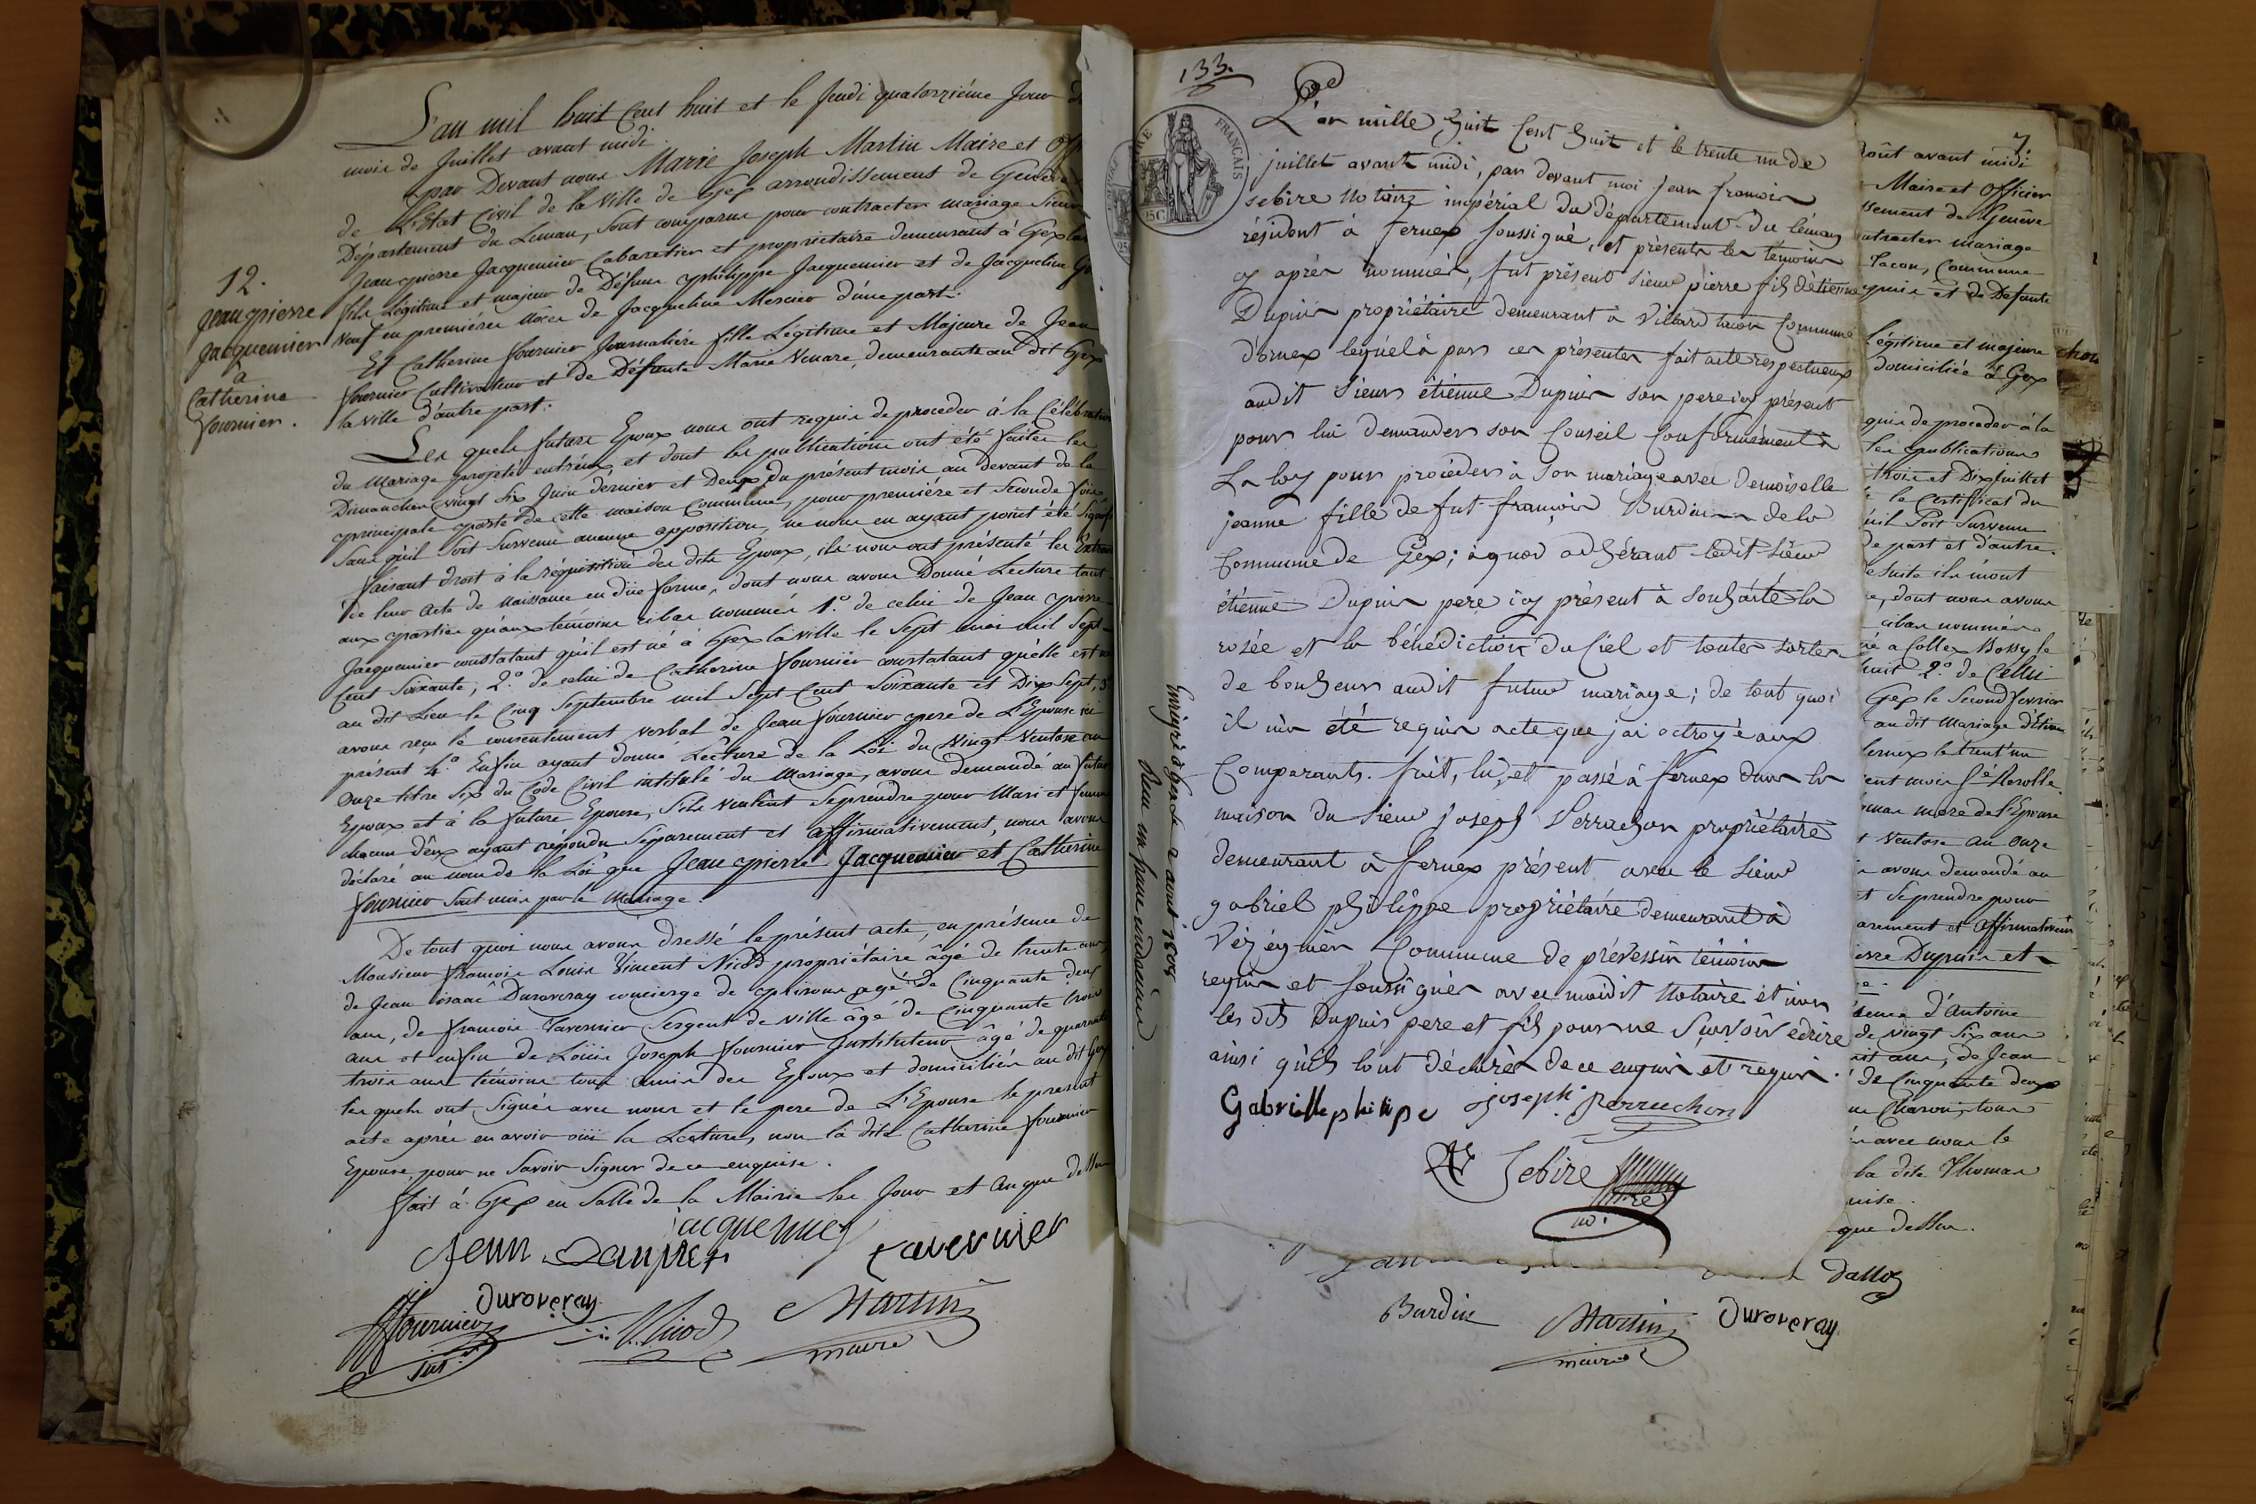 L'an mil huit Cent huit et le Jeudi quatorzième Jour d
mois de Juillet avant midi
par Devant nous Marie Joseph Martin Maire et Off
de L'Etat Civil de la Ville de Gex arrondissement de Genève
Département du Leman, sont comparus pour contracter mariage Sieur
Jean pierre Jacquemier Cabaretier et propriétaire demeurant à Gex la
fils légitime et majeur de Défunt philippe Jacquemier et de Jacqueline
Veuf en premières noces de Jacqueline Mercier d'une part.
Et Catherine fournier Journalière fille Légitime et Majeure de Jean
fournier Cultivateur et de Défunte Marie Venare, demeurante au dit Gex
la ville d'autre part.
12.
Jean pierre
Jacquemier
à
Catherine
fournier.
Les quels futurs Epoux nous ont requis de proceder à la Célébration
du Mariage projetté entr'eux, et dont les publications ont été faites les
Dimanches vingt Six Juin dernier et Deux du présent mois au devant de la
principale porte de cette maison Commune, pour première et Seconde fois
Sans qu'il Soit Survenu aucune opposition, ne nous en ayant point été Signifié
faisant droit à la réquisition des dits Epoux, ils nous ont présenté les Extraits
de leur acte de naissance en düe forme, dont nous avons Donné Lecture tant
aux parties qu'aux témoins cibas nommés 1.º de celui de Jean pierre
Jacquemier constatant qu'il est né à Gex la ville le Sept mars mil Sept
Cent Soixante, 2.º de celui de Catherine fournier constatant qu'elle est née
au dit Lieu le Cinq Septembre mil Sept Cent Soixante et Dix Sept, 3
avons reçu le consentement verbal de Jean fournier pere de L'Epouse ici
présent 4.º Enfin ayant donné Lecture de la Loi du Vingt Ventose an
onze titre Six du Code Civil intitulé du Mariage, avons demandé au futur
Epoux et à la future Epouse, S'ils veulent Se prendre pour Mari et femme
chacun d'eux ayant répondu Séparement et affirmativement, nous avons
déclaré au nom de la Loi que Jean pierre Jacquemier et Catherine
fournier Sont unis par le Mariage.
De tout quoi nous avons dressé le présent acte, en présence de
Monsieur François Louis Viment Nicod propriétaire âgé de trente ans,
de Jean isaac Duroveray concierge de prisons agé de Cinquante deux
ans, de françois Tavernier Sergent de ville âgé de Cinquante trois
ans et enfin de Loüis Joseph fournier Instituteur âgé de quarante
trois ans témoins tous amis des Epoux et domiciliés au dit Gex
les quels ont Signés avec nous et le pere de L'Epouse le present
acte après en avoir oüi la Lecture, non la dite Catherine fournier
Epouse pour ne Savoir Signer de ce enquise.
fait à Gex en Salle de la Mairie les Jour et an que dessus
Jacquemier
Jean
Tavernier
Duroveray
fournier
Nicod
Martin
maire
133.
FRANÇAIS
L'an mille huit Cent huit et le trente un de
juillet avant midi, par devant moi Jean françois
sebire Notaire impérial du département du léman
résident à fernex soussigné, et présents les témoins
cy après nommés, fut présent sieur pierre fils d'étienne
Dupuis propriétaire demeurant à Villard tacon Commune
d'ornex lequel à par ces présentes fait acte respectueux
audit sieur étienne Dupuis son pere icy présent
pour lui demander son Conseil conformément à
La loy pour procéder à son mariage avec demoiselle
jeanne fille de fut françois Burdin de la
Commune de Gex; à quoi adhérant ledit sieur
étienne Dupuis pere icy présent à souhaité la
rosée et la bénédiction du Ciel et toutes sortes
de bonheur audit futur mariage; de tout quoi
il m'a été requis acte que j'ai octroyé aux
Comparants. fait, lu, et passé à fernex dans la
maison du sieur joseph Perrachon propriétaire
demeurant à fernex présent avec le sieur
gabriel philippe propriétaire demeurant à
Vézégnin Commune de prévessin témoins
requis et soussignés avec moidit Notaire et non
les dits Dupuis pere et fils pour ne Sçavoir écrire
ainsi qu'ils l'ont déclarés de ce enquis et requis.
Gabrielle philipe
Joseph Perrachon
Sebire
Reçu un franc
7.
août avant midi
Maire et Officier
ssement de Genève
ntracter mariage
Tacon, Commune
upuis et de Defunte
Légitime et majeure
domiciliée à Gex
quis de proceder à la
les publications
trois et Dix Juillet
le Certificat du
uil Soit Survenu
de part et d'autre.
e Suite ils m'ont
e, dont nous avons
cibas nommés
né a Collex Bossy le
huit 2.º de Celui
Gex le Second fevrier
au dit Mariage d'Etienne
fernex le trent'un
mas mere de l'Epouse
t Ventose an onze
s avons demandé au
et Se prendre pour
arement et affirmativement
ierre Dupuis et
d'Antoine
de vingt Six ans
it ans, de Jean
de Cinquante deux
us Charon, tous
s avec nous le
la dite Thomas
uise.
que dessus.
Dalloz
Burdin
Martin
maire
Duroveray